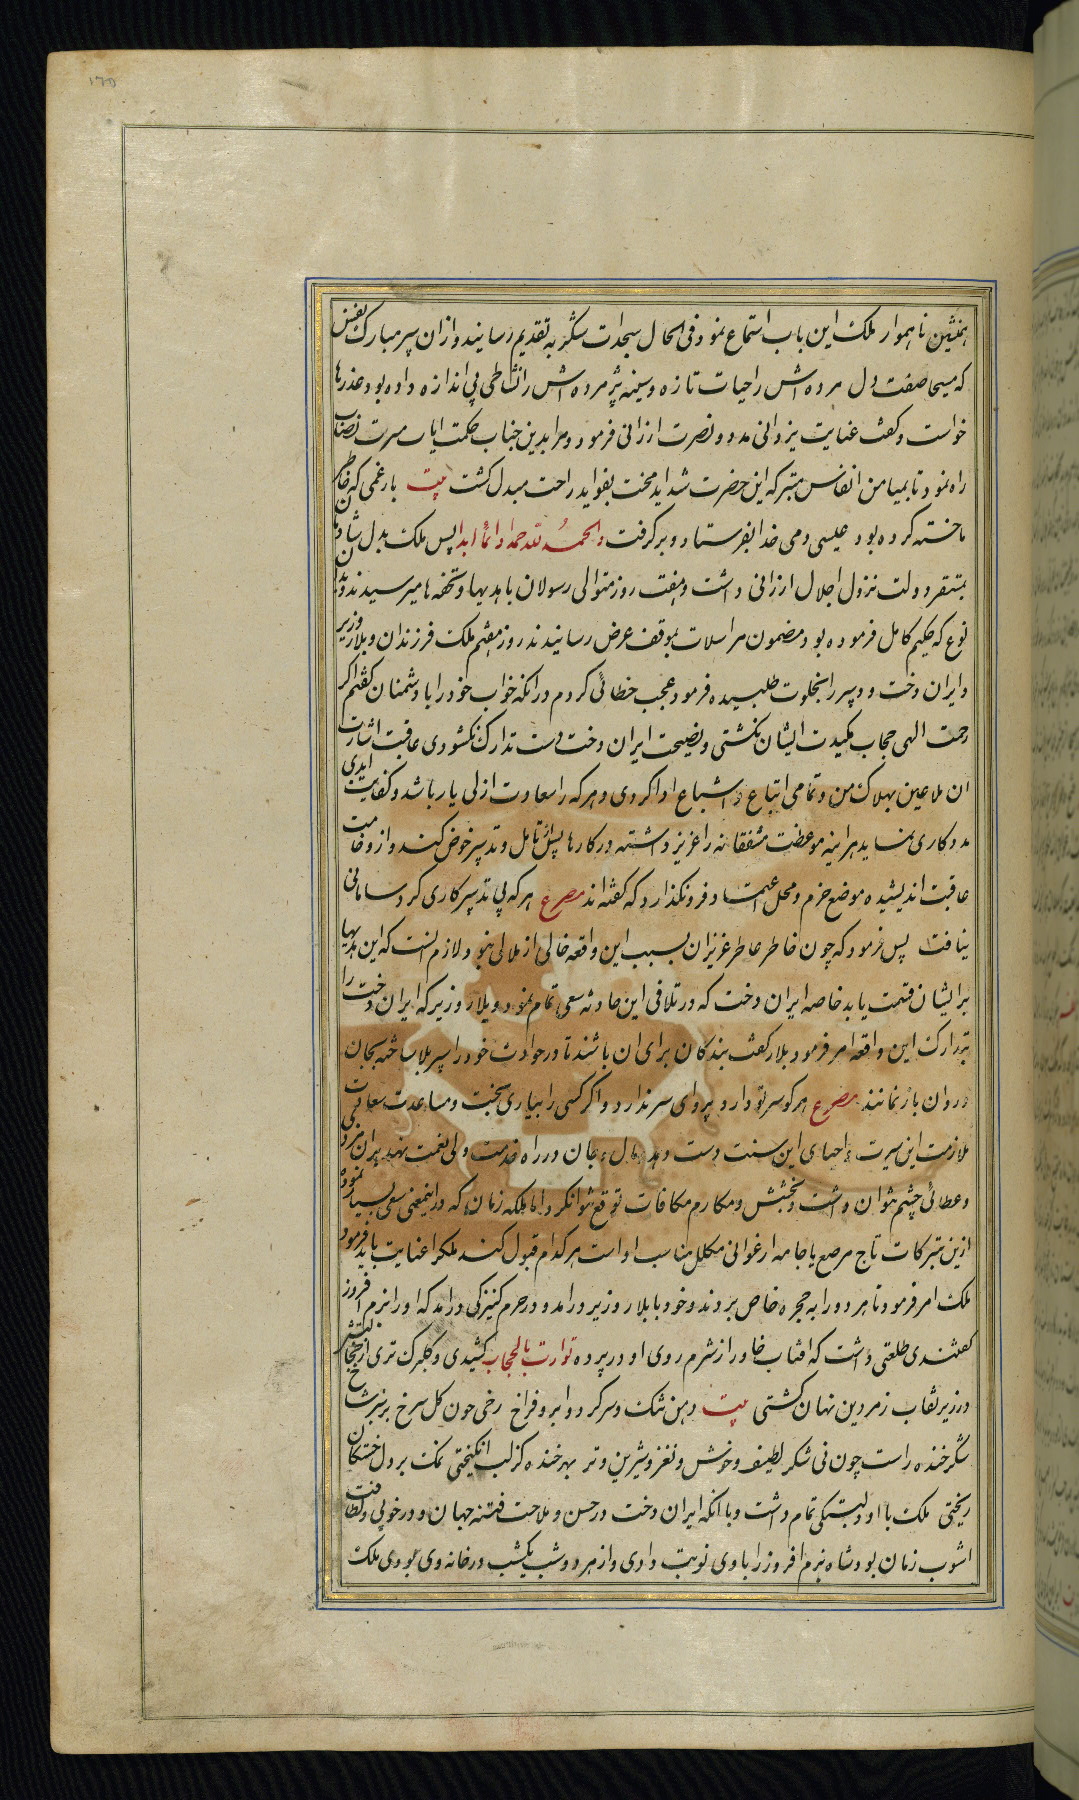 ١٦٥
همنشین ناهموار ملک این باب استماع نمود فی الحال سجدات شکر به تقدیم رسانید و از ان پیر مبارک نفس
که مسیحا صفت دل مرده اش را حیات تازه و سینه پژمرده اش را نشاطی بی اندازه داده بود عذرها
خواست و کفت عنایت یزدانی مدد و نصرت ارزانی فرمود و مرا بدین جناب حکمت ایاب مسرت نصاب
راه نمود تا بمیامن انفاس متبرکه این حضرت شداید محنت بفواید راحت مبدل کشت بیت بار غمی که خاطر
ما خسته کرده بود عیسی دمی خدا بفرستاد و برکرفت والحمد لله حمدا دائما ابدا پس ملک بدل شادمان
بمستقر دولت نزول اجلال ارزانی داشت و هفت روز متوالی رسولان با هدیها و تحفه ها میرسیدند و بدان
نوع که حکیم کامل فرموده بود مضمون مراسلات بموقف عرض رسانیدند روز هفتم ملک فرزندان و بلار وزیر
و ایران دخت و دبیر را بخلوت طلبیده فرمود عجب خطائی کردم در انکه خواب خود را با دشمنان کفتم اکر
رحمت الهی حجاب مکیدت ایشان نکشتی و نصیحت ایران دخت دست تدارک نکشودی عاقبت اشارت
ان ملاعین بهلاک من و تمامی اتباع و اشیاع ادا کردی و هر که را سعادت ازلی یار باشد و کفایت ابدی
مددکاری نماید هراینه موعظت مشفقانه را عزیز داشته در کارها پس از تامل و تدبیر خوض کند و از وخامت
عاقبت اندیشیده موضع حزم و محل احتیاط فرو نکذارد که کفته اند مصرع هر که بی تدبیر کاری کرد سامانی
نیافت پس فرمود که چون خاطر عاطر عزیزان بسبب این واقعه خالی از ملالی نبود لازم است که این هدیها
بر ایشان قسمت یابد خاصه ایران دخت که در تلافی این حادثه سعی تمام نمود و بلار وزیر که ایران دخت را
بتدارک این واقعه امر فرمود بلار کفت بندکان برای ان باشند تا در حوادث خود را سپر بلا ساخته بجان
و روان باز نمانند مصرع هر کو سر تو دارد پروای سر ندارد و اکر کسی را بیاری بخت و مساعدت سعادت
ملازمت این سیرت و احیای این سنت دست دهد مال و جان در راه خدمت ولی نعمت نهد بران مزد
و عطائی چشم نتوان داشت و بخشش و مکارم مکافات توقع نتوان کرد اما ملکه زمان که در اینمعنی سعی بسیار نموده
ازین تبرکات تاج مرصع یا جامه ارغوانی مکلل مناسب او است هر کدام قبول کند ملکرا عنایت باید فرمود
ملک امر فرمود تا هر دو را به حجره خاص بردند و خود با بلار وزیر درامد و در حرم کنیزکی درامد که او را بزم افروز
کفتندی طلعتی داشت که افتاب خاور از شرم روی او در پرده توارت بالحجاب کشیدی و کلبرک تری از خجالتش
در زیر نقاب زمردین نهان کشتی بیت دهن تنک و سر کرد و ابرو فراخ رخی چون کل سرخ بر سبز شاخ
شکر خنده راست چون نی شکر لطیف و خوش و نغز و شیرین و تر بهر خنده کز لب انکیختی نمک بر دل خستکان
ریختی ملک با او دلبستکی تمام داشت و با انکه ایران دخت در حسن و ملاحت فتنه جهان و در خوبی و لطافت
اشوب زمان بود شاه بزم افروز را با وی نوبت دادی و از هر دو شب یکشب در خانه وی بودی ملک